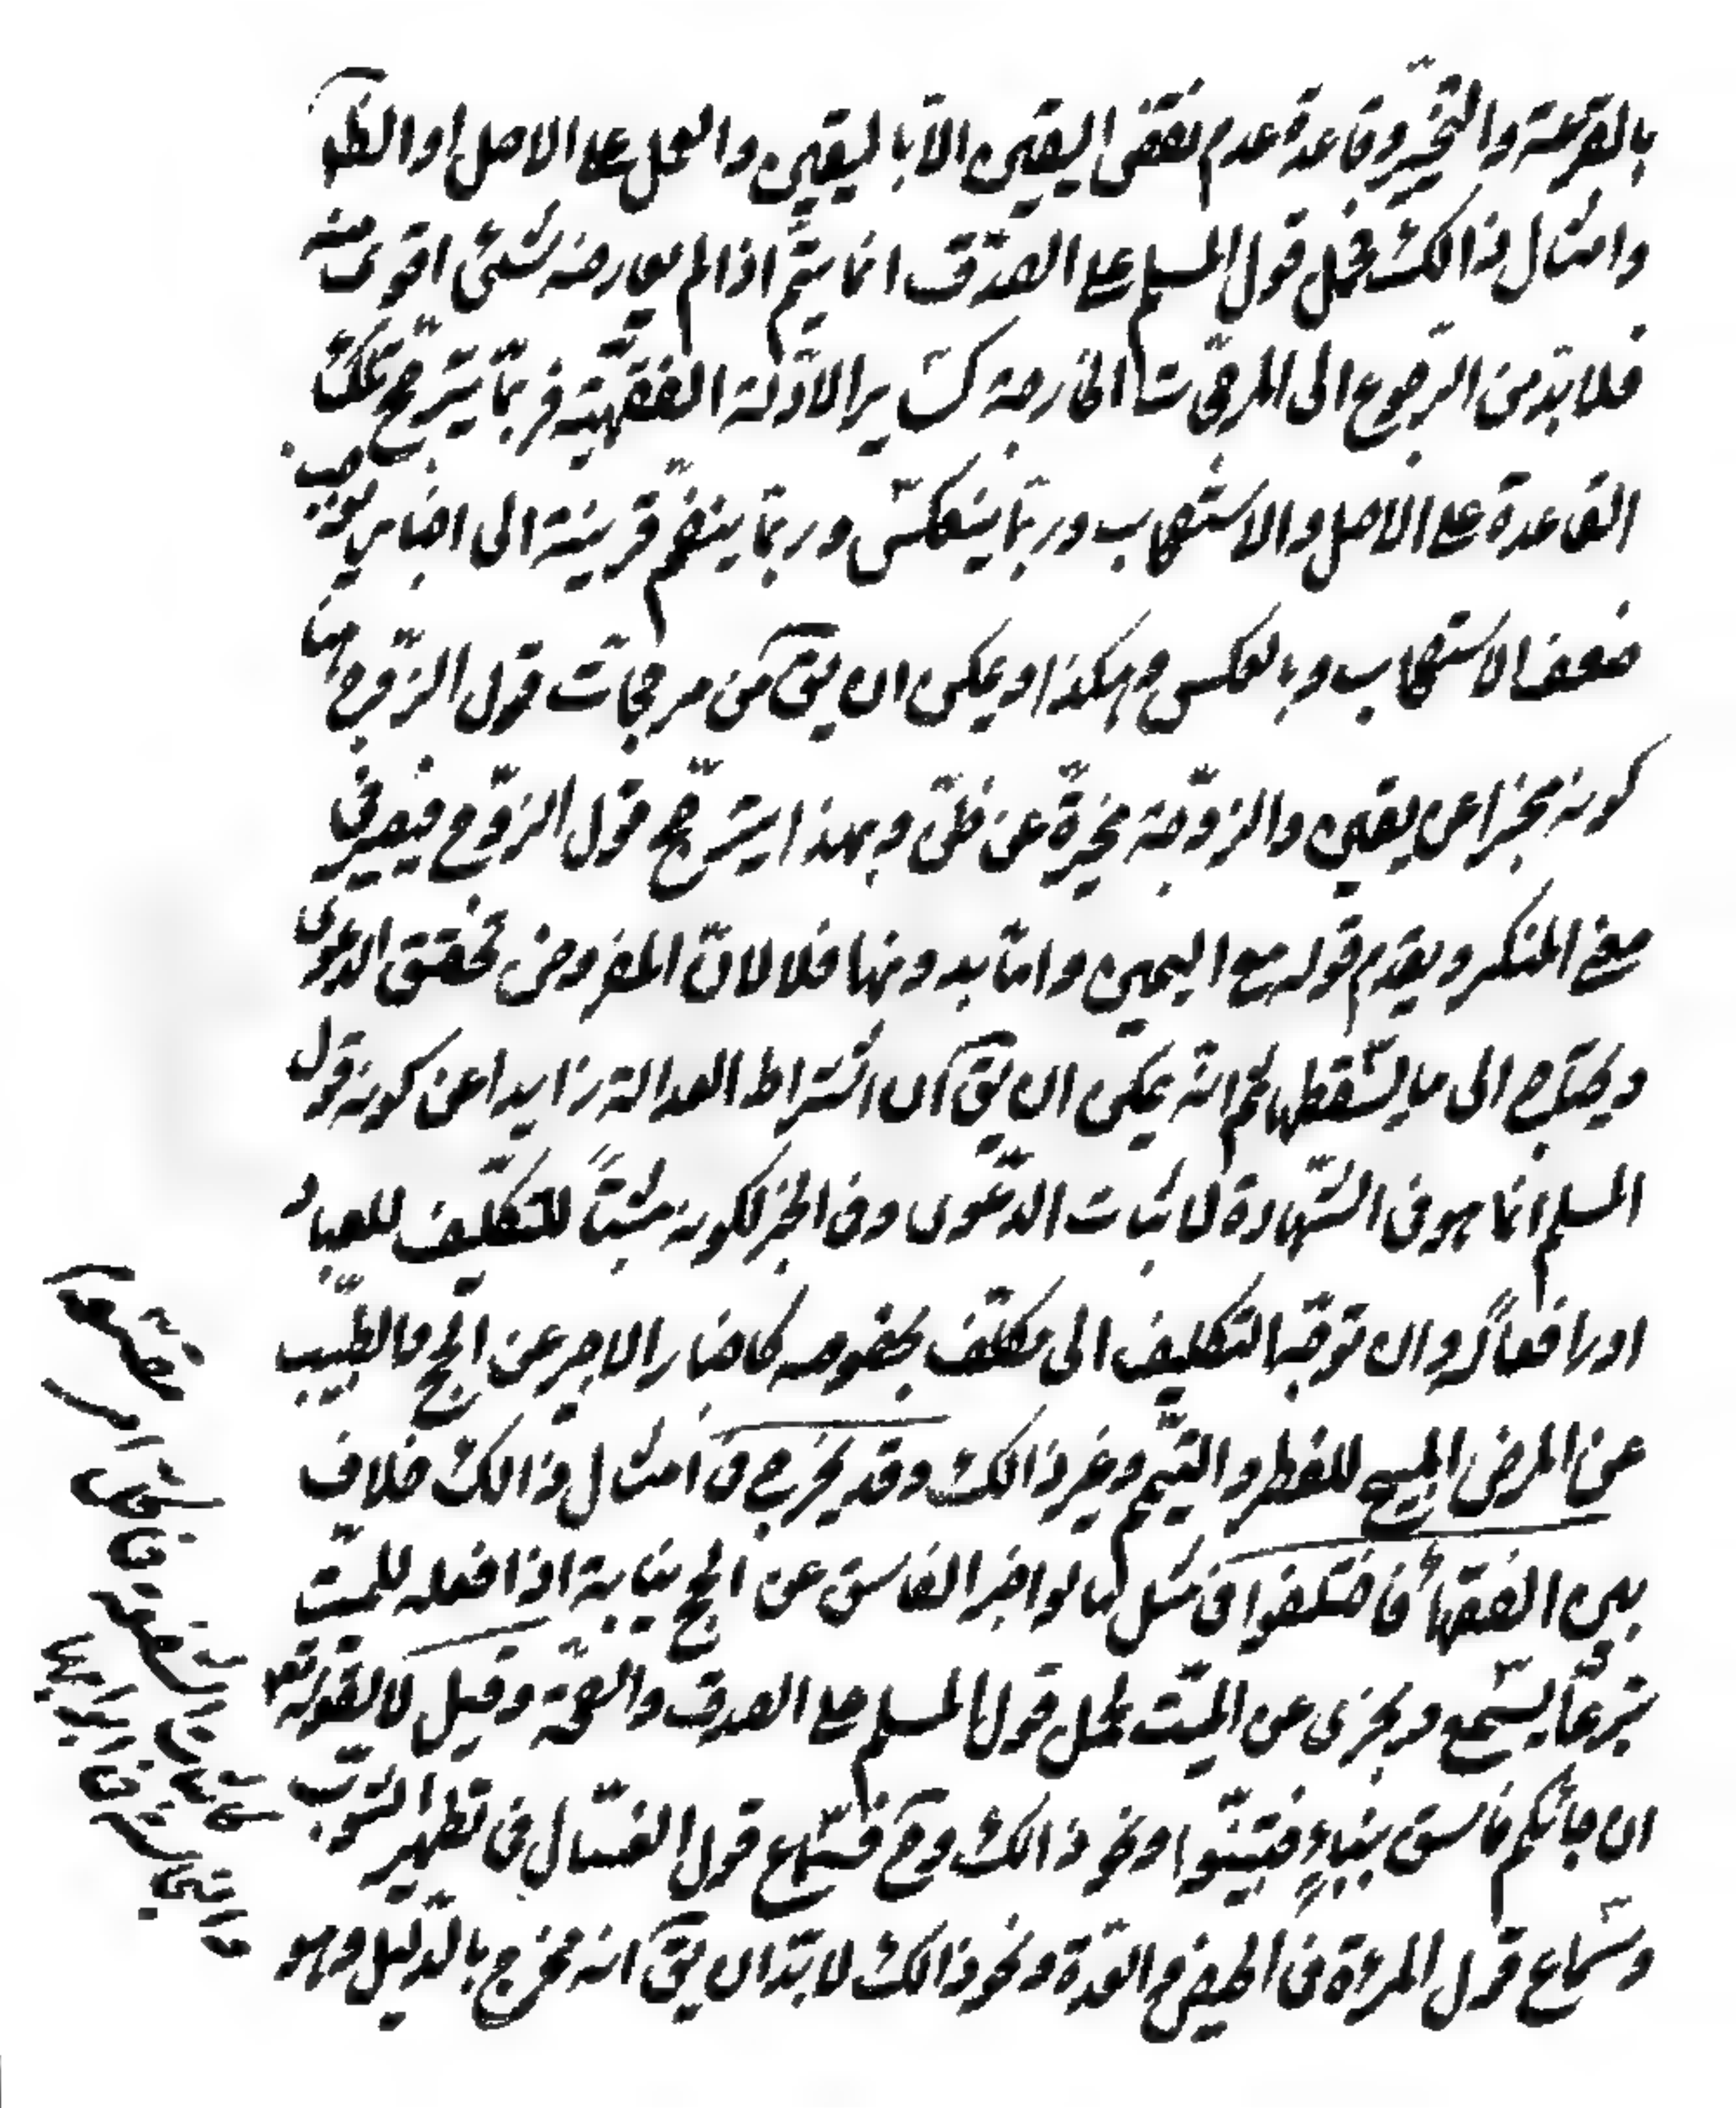 بالقرعة والتخيّر وقاعدة عدم نقض اليقين الّا باليقين والعمل على الاصل او الظ
وامثال ذالك فحمل قول المسلم على الصّدق انما يتمّ اذا لم يعارضه شئ اقوى منه
فلا بدّ من الرّجوع الى المرجّحات الخارجة كساير الادّلة الفقهيّة فربّما يترجّح تلك
القاعدة على الاصل والاستصحاب وربّما ينعكس وربّما ينضمّ قرينة الى اخبار يوجب
ضعف الاستصحاب وبالعكس وهكذا ويمكن ان يق من مرجحات قول الزّوج هنا
كونه مخبرا عن يقين والزوّجة مخبرة عن ظنّ وبهذا يترجّح قول الزوّج فيصير في
معنى المنكر ويقدم قوله مع اليمين وامّا بدونها فلا لانّ المفروض تحقق الدعوى
ويحتاج الى ما يسقطها ثم انّه يمكن ان يق ان اشتراط العدالة زايدا عن كونه قول
المسلم انما هو في الشّهادة لاثبات الدّعوى وفي الخبر لكونه مثبتاً للتكليف للعباد
او رافعاً له وان توجّه التكليف الى مكلّف بخصوصه كاخبار الاجير عن الحج والطبيب
عن المرض المبيح للفطر والتيمّم وغير ذالك وقد يخرج في امثال ذالك خلاف
بين الفقهاء فاختلفوا في مثل ما لو اخبر الفاسق عن الحج نيابة اذا فعله للميّت
تبرعّا يسمع ويجزى عن الميّت لحمل قول المسلم على الصدق والصّحة وقيل لا لقوله تعـ
ان جائكم فاسق بنباءٍ فتبيّنوا ونحو ذالك وح فسّماع قول الغسّال في تطهير الثوب
وسماع قول المرئة في الحيض والعدّة ونحو ذالك لا بدّ ان يق انه مخرج بالدّليل وهو